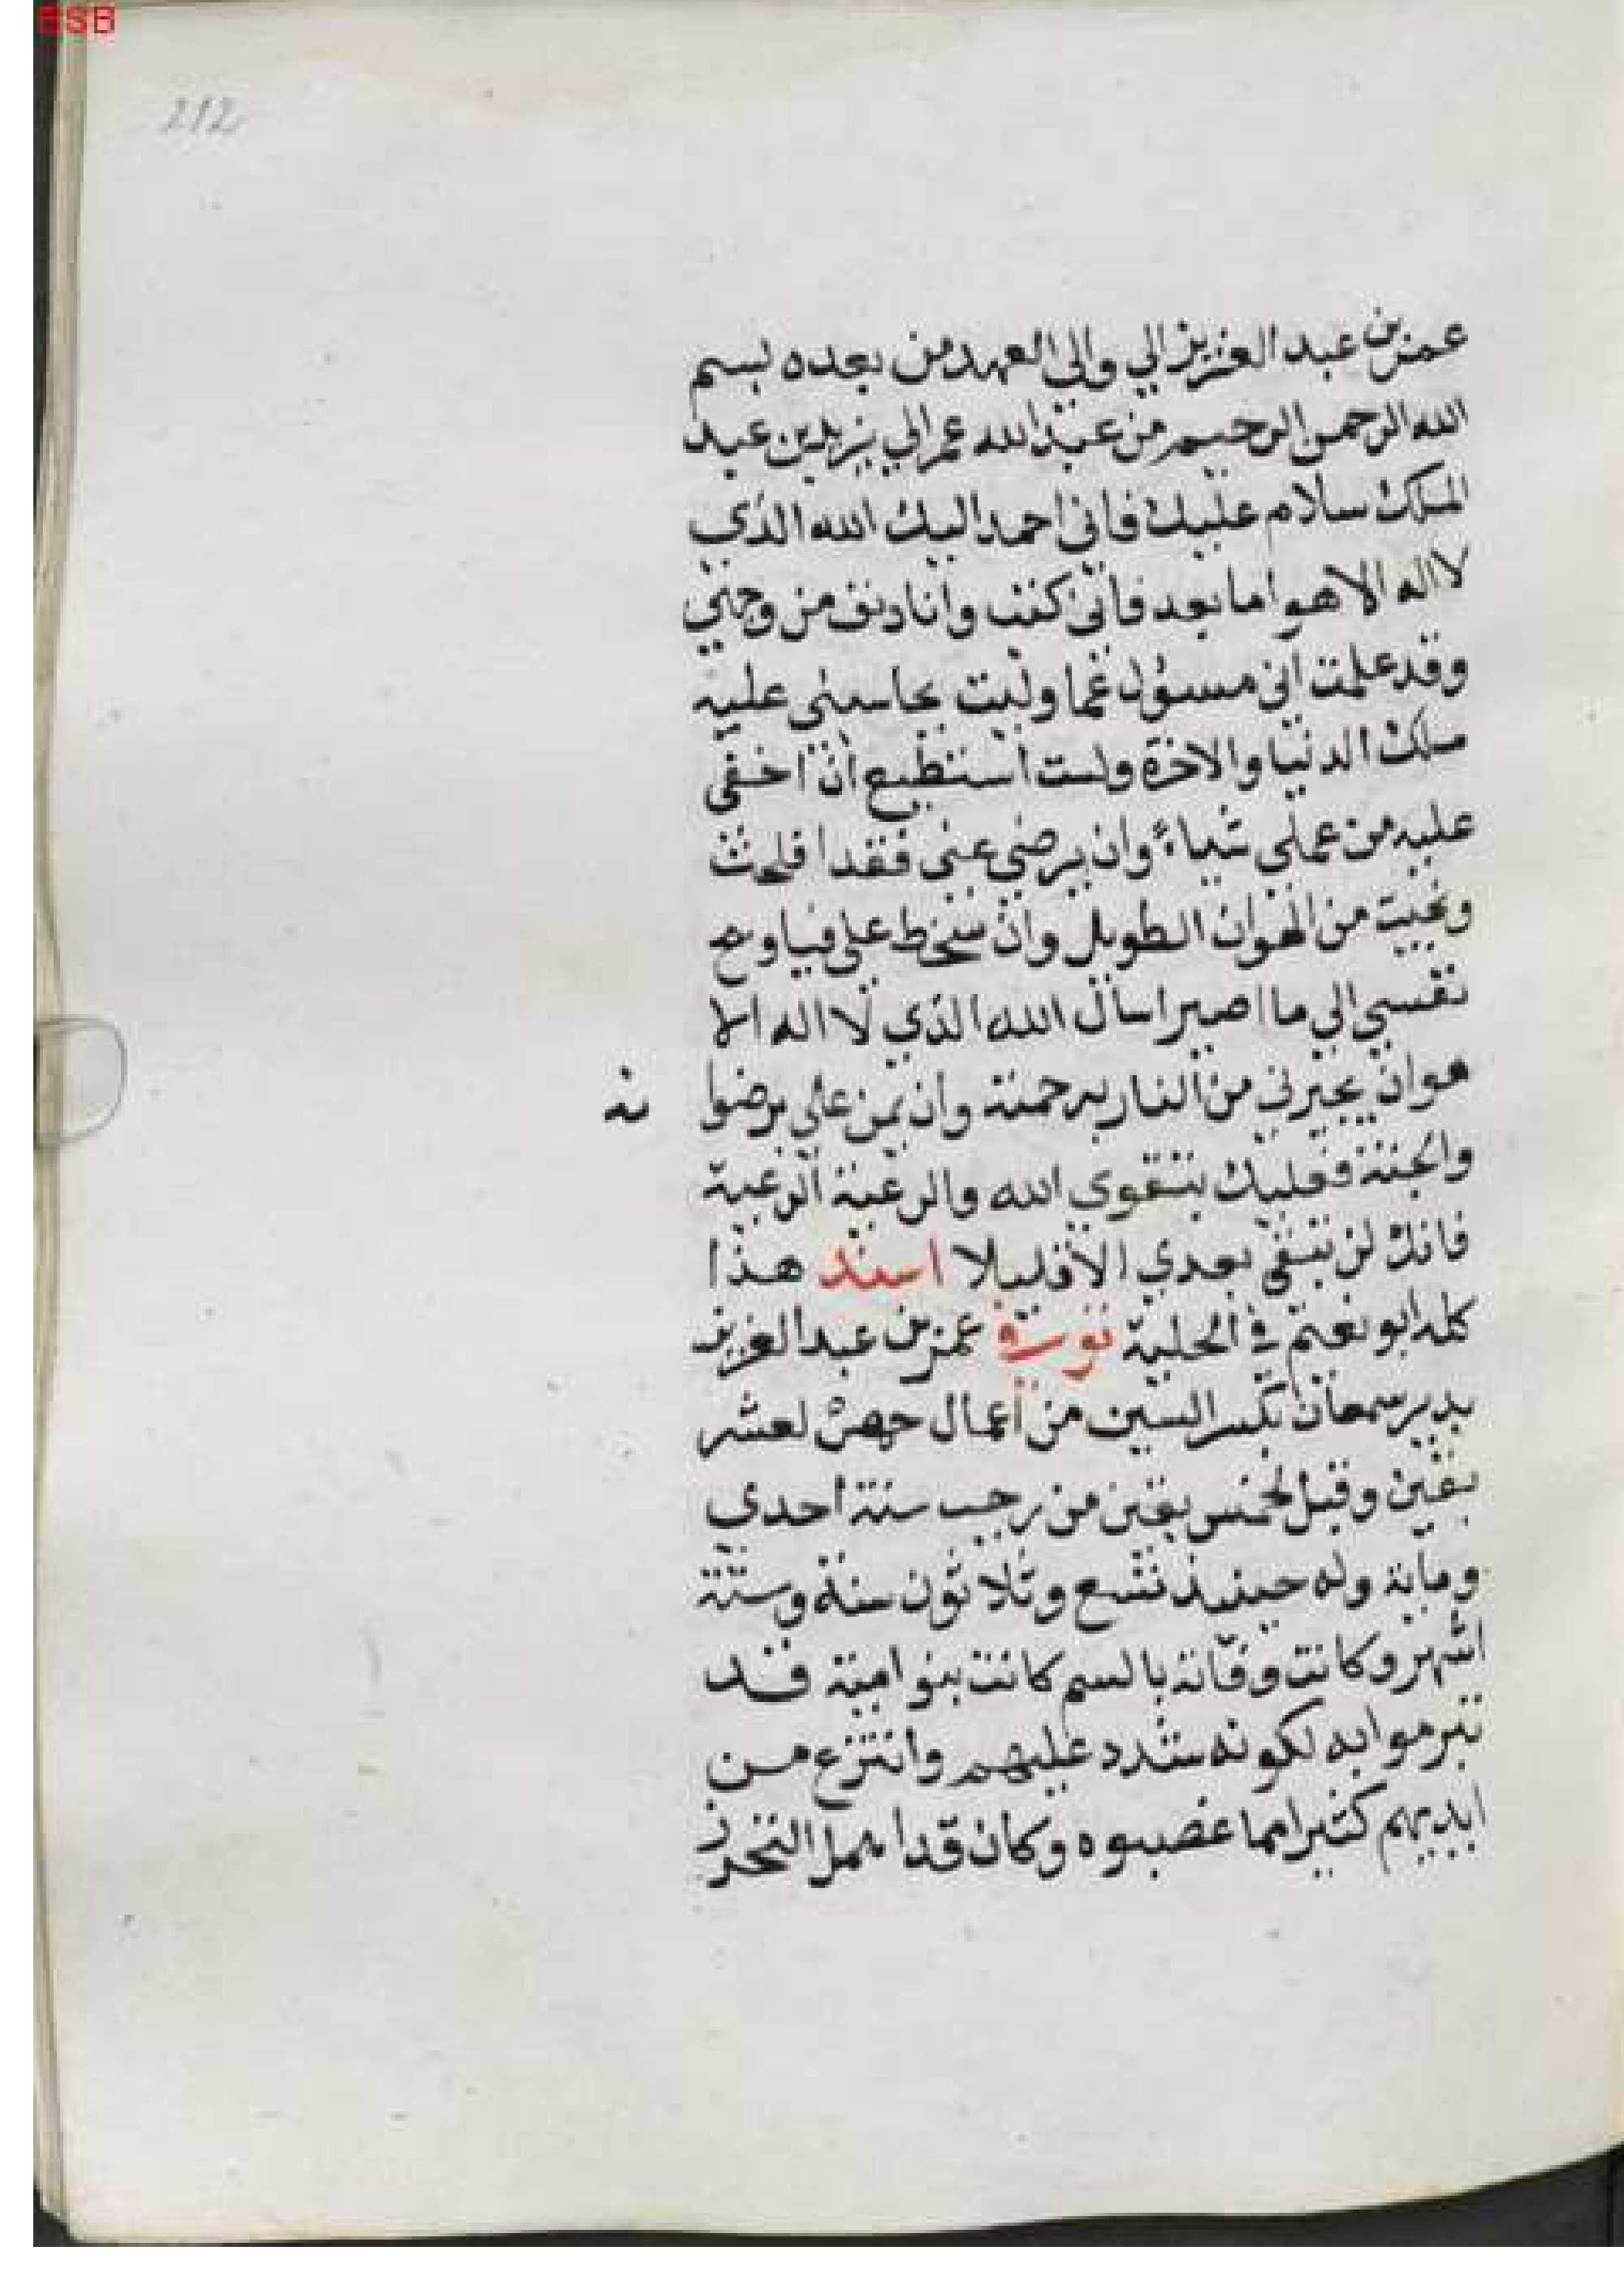 BSB
212
عمر بن عبد العزيز الي والي العهد من بعده بسم
الله الرحمن الرحيم من عبد الله عمر الي يزيد بن عبد
الملك سلام عليك فاني احمد اليك الله الذي
لا اله الا هو اما بعد فاني كتبت وانا دنف من وجعي
وقد علمت اني مسؤل عما وليت يحاسبني عليه
ملك الدنيا والاخرة ولست استطيع ان اخفي
عليه من عملي شياء وان يرضي عني فقد افلحت
ونجيت من الهوان الطويل وان سخط علي فيا ويح
نفسي الي ما اصير اسال الله الذي لا اله الا
هو ان يجيرني من النار برحمته وان يمن علي برضوا نه
والجنة فعليك بتقوي الله والرعية الرعية
فانك لن تبقي بعدي الا قليلا اسند هذا
كله ابو نعيم في الحلية توفي عمر بن عبد العزيز
بدير سمعان بكسر السين من اعمال حمص لعشر
بقين وقيل لخمس بقين من رجب سنة احدي
وماية وله حينيذ تسع وثلاثون سنة وستة
اشهر وكانت وفاته بالسم كانت بنو امية قد
تبرموا به لكونه شدد عليهم وانتزع من
ايديهم كثيرا مما غصبوه وكان قد اهمل التحرز